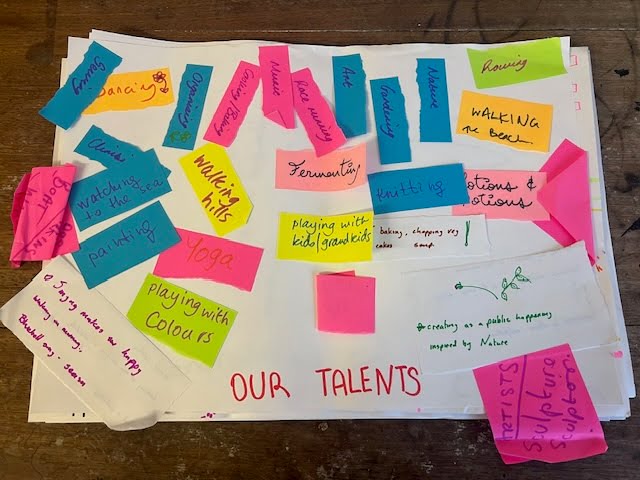 Dancing
Organising
Music
Race running
Art
Gardening
Nature
Rowing
WALKING
THE BEACH
walking
hills
Fermenting
knitting
Potions &
Lotions
watching
to the sea
painting
Yoga
playing with
kids/grandkids
baking, chopping veg
cakes soup
playing with
Colours
Singing makes me happy
Walking in nature
Bluebell
creating as a public happening
inspired by Nature
OUR TALENTS
ARTISTS
Sculpture
Sculptor